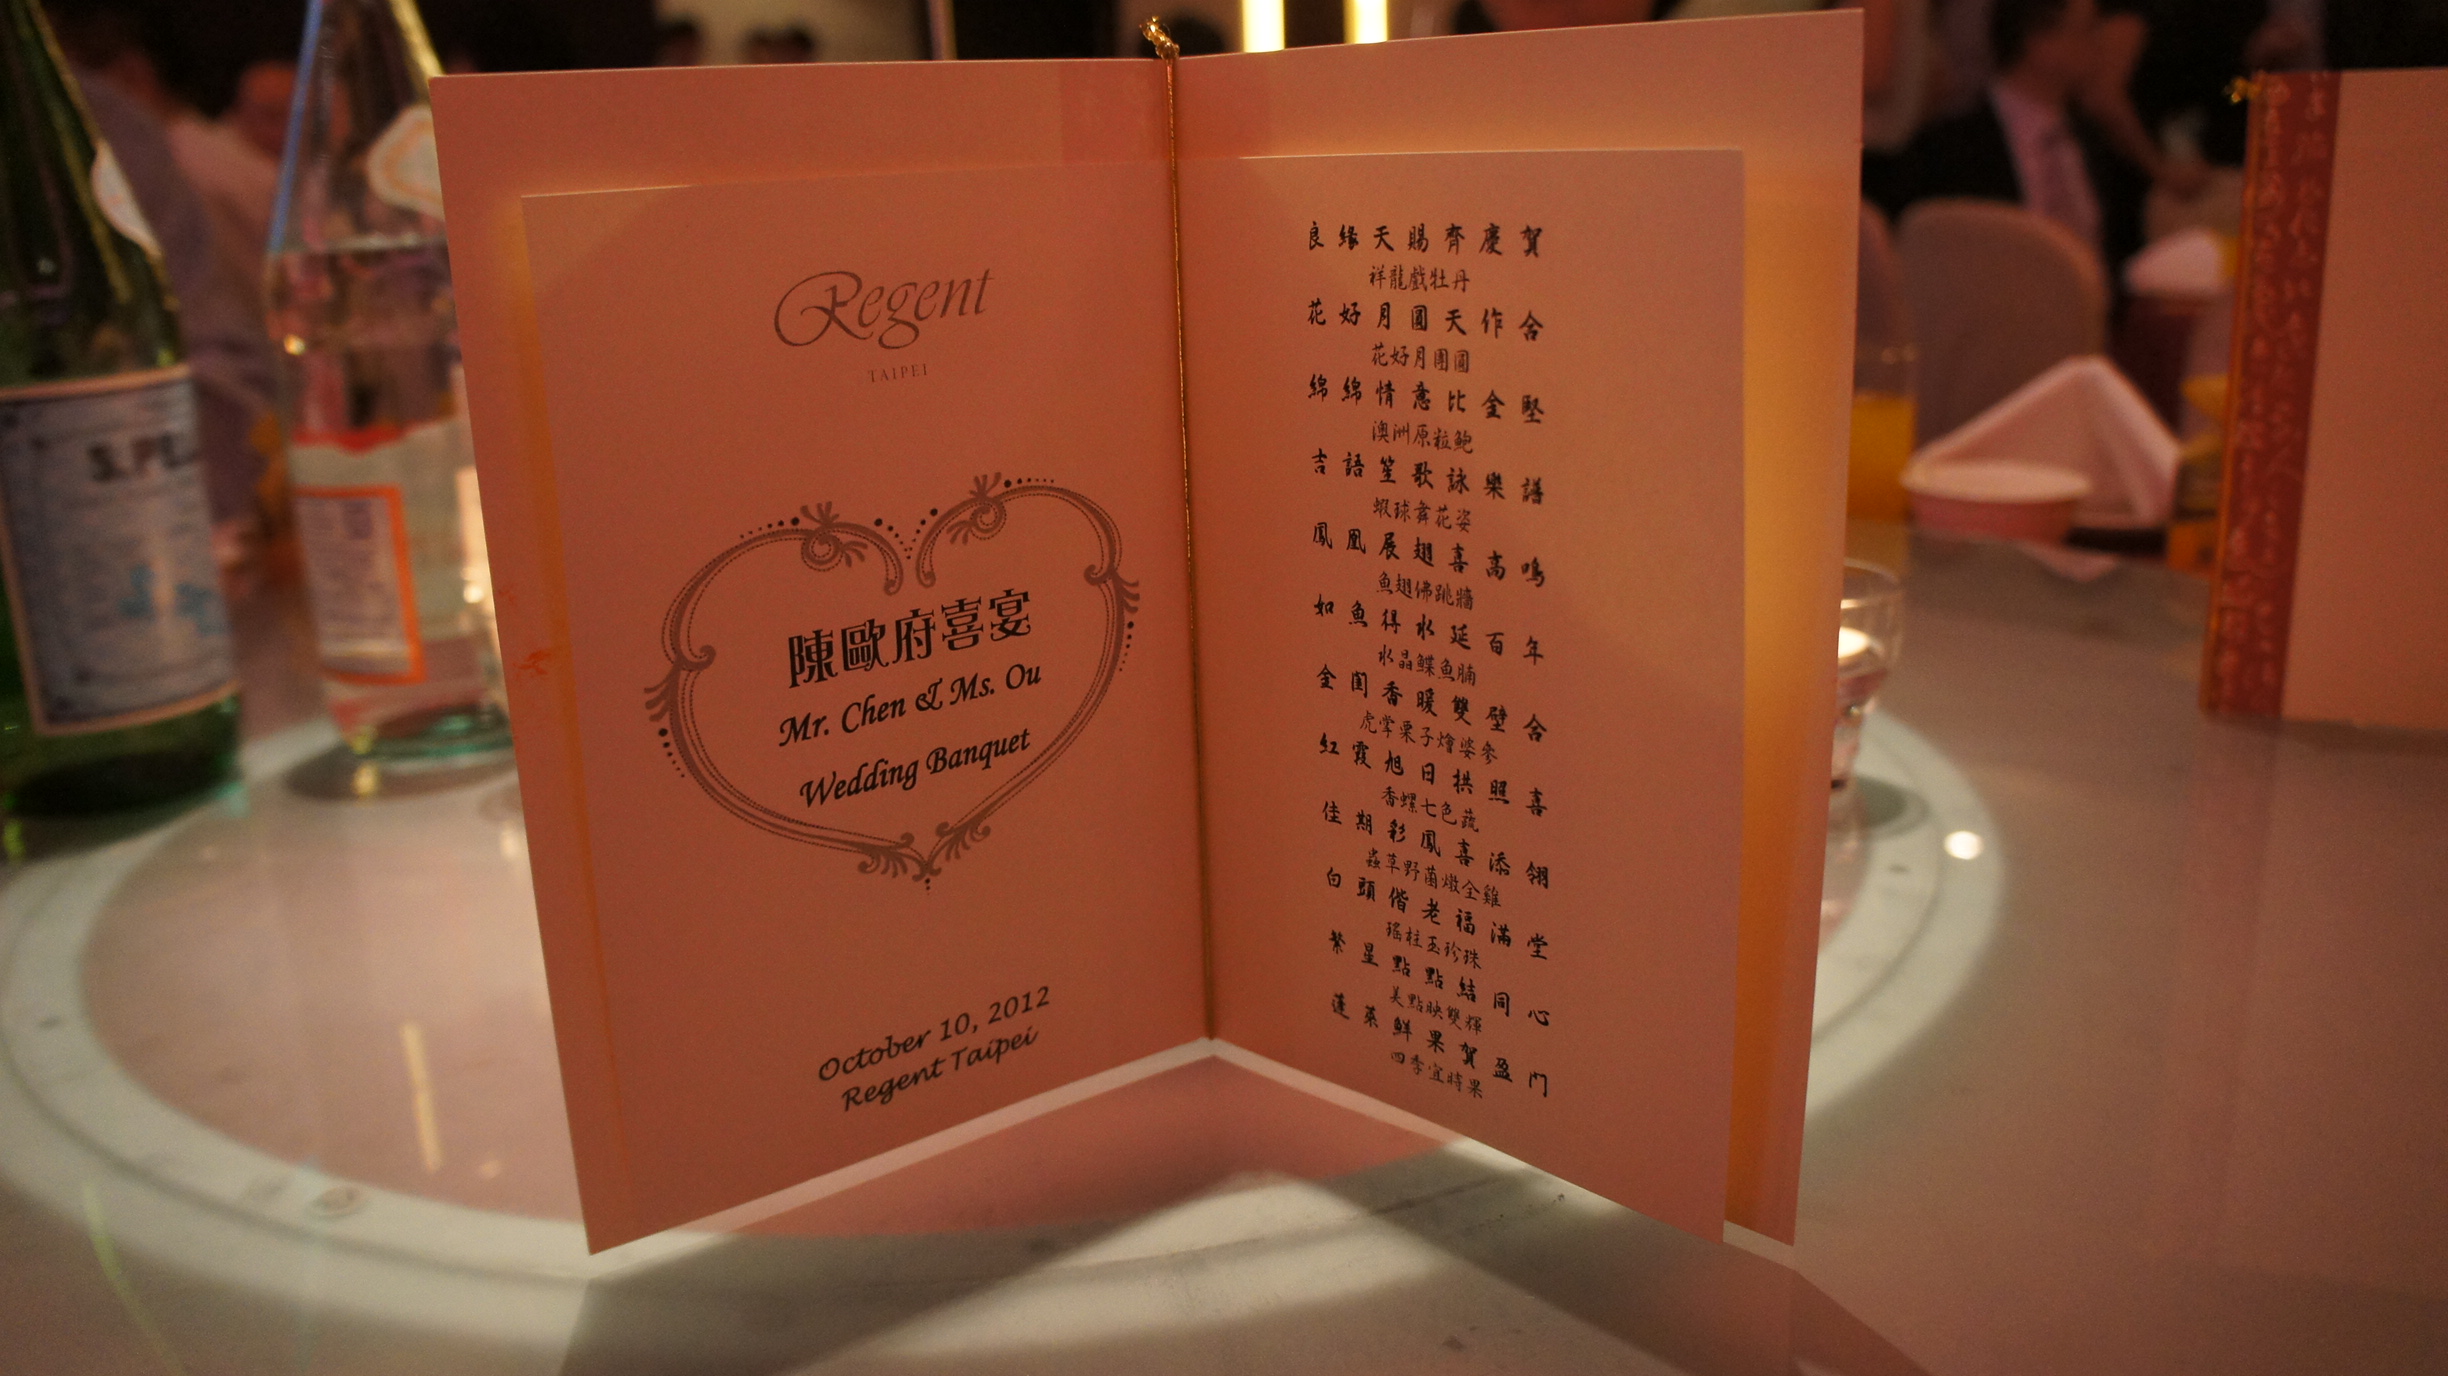 S.PEL
Regent
TAIPEI
陳歐府喜宴
Mr. Chen & Ms. Ou
Wedding Banquet
October 10, 2012
Regent Taipei
良緣天賜齊慶賀
祥龍戲牡丹
花好月圓天作合
花好月團圓
綿綿情意比金堅
澳洲原粒鮑
吉語笙歌詠樂譜
蝦球舞花姿
鳳凰展翅喜高鳴
魚翅佛跳牆
如魚得水延百年
水晶鰈魚腩
金閨香暖雙壁合
虎掌栗子燴婆參
紅霞旭日拱照喜
香螺七色蔬
佳期彩鳳喜添翎
蟲草野菌燉全雞
白頭偕老福滿堂
瑤柱玉珍珠
繁星點點結同心
美點映雙輝
蓬萊鮮果賀盈門
四季宜時果